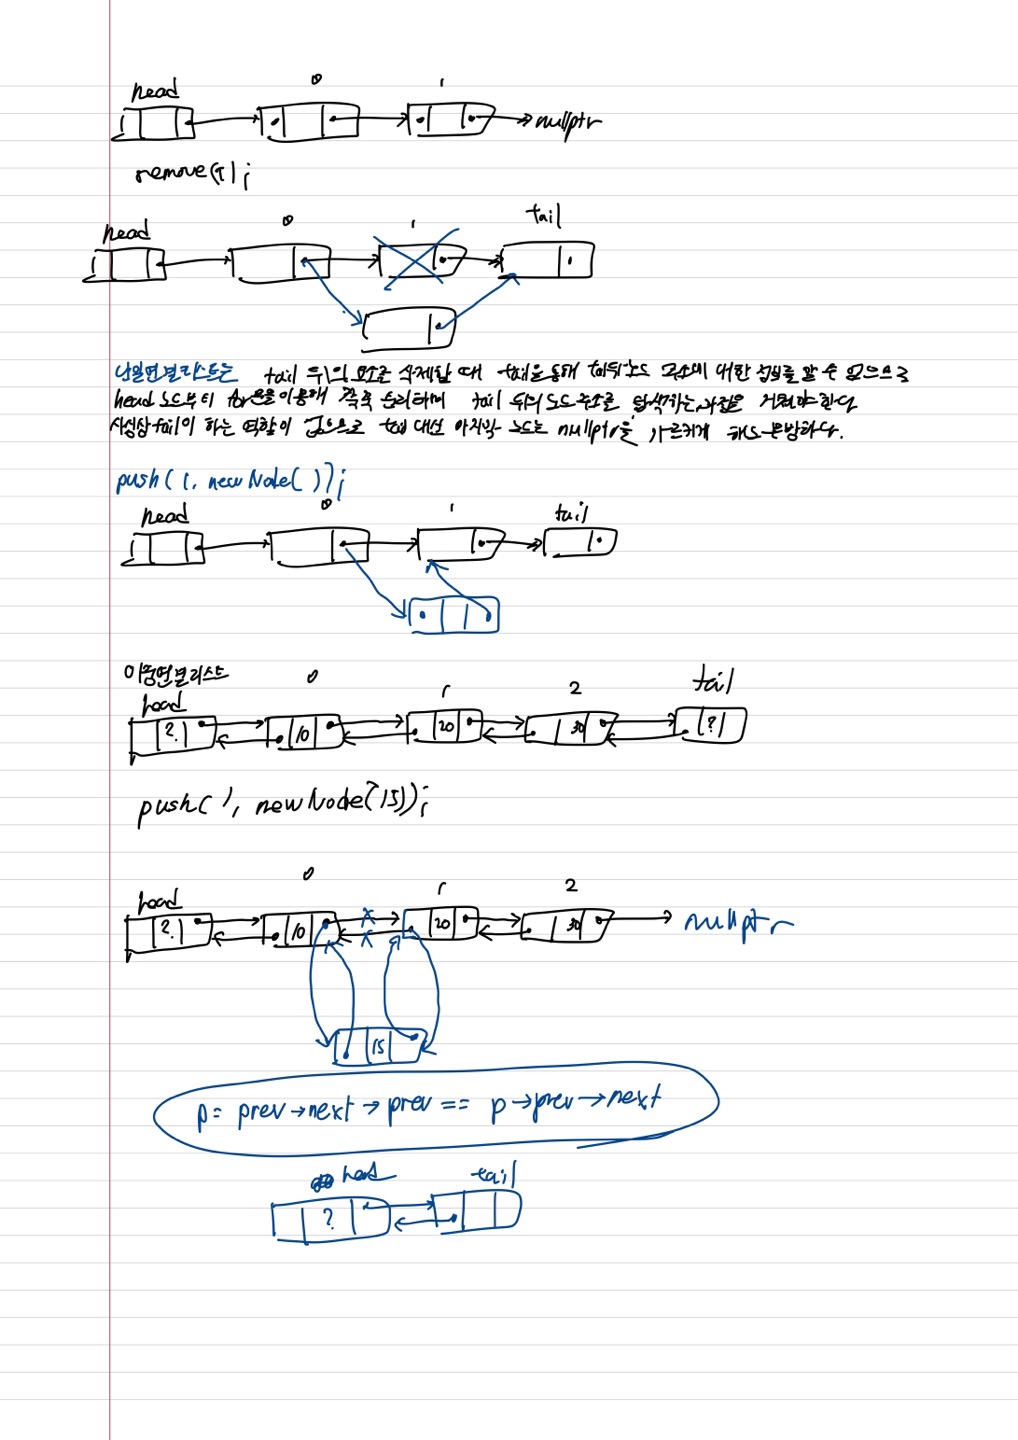 head 0 1
nullptr
remove(1);
head 0 1 tail
단일연결리스트는 tail 뒤의 요소로 삭제할 때 tail을 통해 tail뒤 노드 주소에 대한 정보를 알 수 없으므로
head 노드부터 for문을 이용해 쭉쭉 순회하며 tail 뒤의 노드 주소로 탐색하는 과정을 거쳐야 한다
사실상 tail이 하는 역할이 없으므로 tail 대신 마지막 노드는 nullptr을 가르키게 해도 무방하다.
push(1, newNode());
head 0 1 tail
이중연결리스트
head 0 1 2 tail
? 10 20 30 ?
push(1, newNode(15));
head 0 1 2
? 10 20 30 nullptr
x
x
15
p = prev→next→prev == p→prev→next
head tail
?